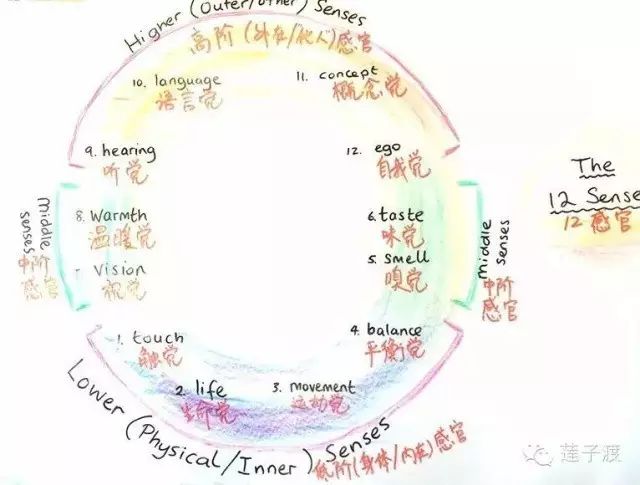 Higher (Outer/other) Senses
高阶(外在/他人)感官
10. language
语言觉
11. concept
概念觉
9. hearing
听觉
12. ego
自我觉
The
12 Sense
12感官
middle
senses
中阶
感官
8. Warmth
温暖觉
6. taste
味觉
middle
senses
中阶
感官
Vision
视觉
5. smell
嗅觉
1. touch
触觉
4. balance
平衡觉
2. life
生命觉
3. movement
运动觉
Lower (Physical/Inner) Senses
低阶(身体/内在)感官
莲子渡